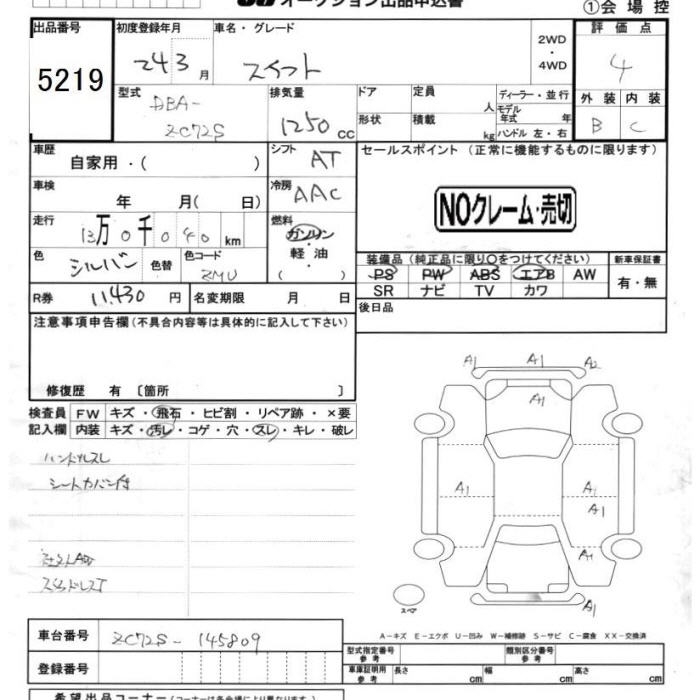 オークション出品申込書
①会場控
出品番号
5219
初度登録年月
24 3月
車名・グレード
スイフト
2WD
・
4WD
評価点
4
外装 内装
B C
型式
DBA-
ZC72S
排気量
1250 cc
ドア
形状
定員
人
積載
kg
ディーラー・並行
モデル年式 年
ハンドル 左・右
車歴
自家用・( )
シフト
AT
セールスポイント (正常に機能するものに限ります)
車検
年 月( 日)
冷房
AAC
NOクレーム・売切
走行
13万0千040 km
燃料
ガソリン
・
軽油
( )
色
シルバー
色替
色コード
ZMU
装備品 (純正品に限り○をつけてください)
PS PW ABS エアB AW
SR ナビ TV カワ
新車保証書
有・無
R券
11,430 円
名変期限 月 日
後日品
注意事項申告欄 (不具合内容等は具体的に記入して下さい)
修復歴 有 〔箇所 〕
検査員記入欄
FW キズ・飛石・ヒビ割・リペア跡・×要
内装 キズ・汚レ・コゲ・穴・スレ・キレ・破レ
ハンドルスレ
シートカバー付
A1 A1 A2
A1
A1
A1
A1
スペア
A-キズ E-エクボ U-凹み W-補修跡 S-サビ C-腐食 XX-交換済
車台番号
ZC72S-145809
登録番号
型式指定番号 参考
類別区分番号 参考
車庫証明用 参考
長さ cm 幅 cm 高さ cm
希望出品コーナー (コーナーは各会場により異なります)